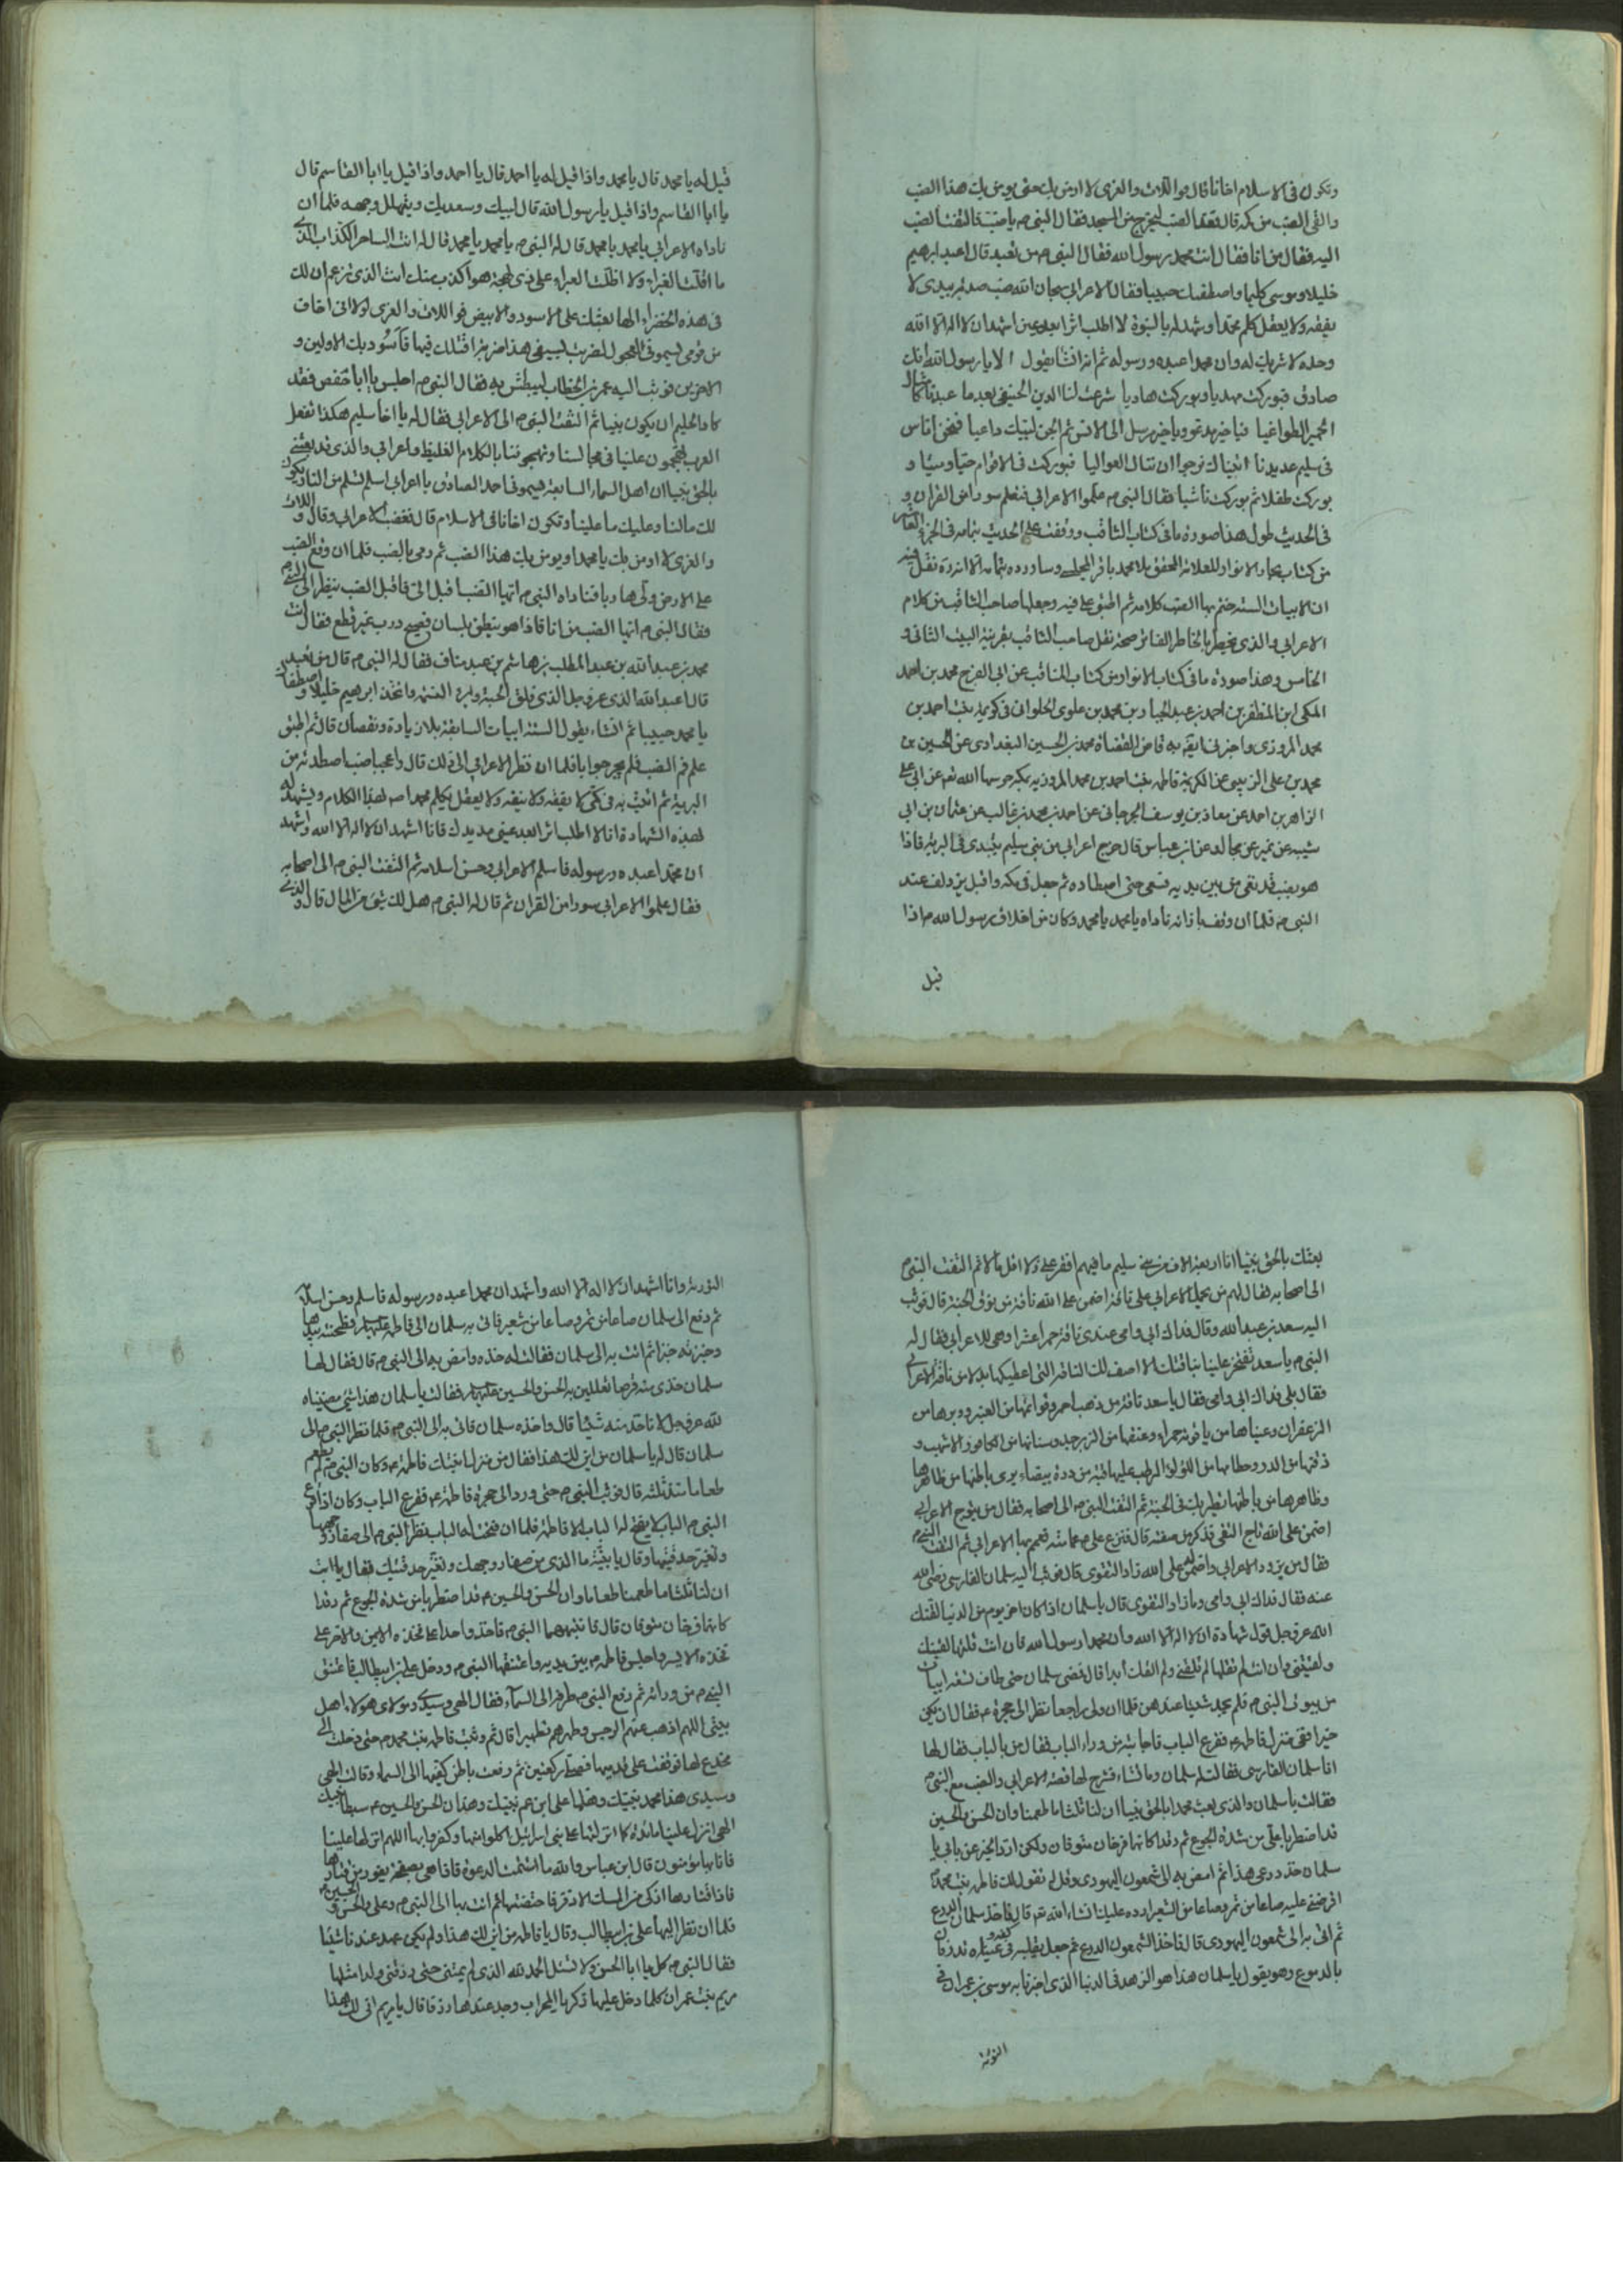 وتكون فى الاسلام اخانا قال فو اللات والعزى لا اومن بك حتى يومن بك هذا الضب
والقى الضب من كمه قال فقعد الضب ليخرج من المسجد فقال النبى ص يا ضب فالتفت الضب
اليه فقال من انا فقال انت محمد رسول الله فقال النبى ص من تعبد قال اعبد ابرهيم
خليلا وموسى كليما واصطفاك حبيبا فقال الاعرابى سبحان الله ضب صدته بيدى لا
يفقه ولا يعقل كلم محمدا وشهد له بالنبوة لا اطلب اثرا بعد عين اشهد ان لا اله الا الله
وحده لا شريك له وان محمدا عبده ورسوله ثم انه انشا يقول الا يا رسول الله انك
صادق فبوركت مهديا وبوركت هاديا شرعت لنا الدين الحنيفى بعد ما عبدنا كامثال
الحمير الطواغيا فيا خير مدعو ويا خير مرسل الى الانس ثم الجن لبيك داعيا فنحن اناس
فى سليم عديدنا اتيناك نرجوا ان ننال العواليا فبوركت فى الاقوام حيا وميتا و
بوركت طفلا ثم بوركت ناشيا فقال النبى ص علموا الاعرابى فتعلم سورا من القران و
فى الحديث طول هذا صورة ما فى كتاب الثاقب ووقفت على الحديث بتمامه فى الجزء العاشر
من كتاب بحار الانوار للعلامة المحقق ملا محمد باقر المجلسى وساورده بتمامه الا انه نقل فيه
ان الابيات الستة ختم بها الضب كلامه ثم اطبق على فيه وجعلها صاحب الثاقب من كلام
الاعرابى والذى يخطر بالخاطر الفاتر صحة نقل صاحب الثاقب بقرينة البيت الثانى و
الخامس وهذا صورة ما فى كتاب الانوار من كتاب المناقب عن ابى الفرج محمد بن احمد
المكى ابن المظفر بن احمد بن عبد الجبار بن محمد بن علوى الحلوانى فى كريمة بنت احمد بن
محمد المروزى واخبرنى ايضا به قاضى القضاة محمد بن الحسين البغدادى عن الحسين بن
محمد بن على الزينبى عن الكريمة فاطمة بنت احمد بن محمد المروزية بمكة حرسها الله تعم عن ابى على
الزاهر بن احمد عن معاذ بن يوسف الجرجانى عن احمد بن محمد بن غالب عن عثمان بن ابى
شيبه عن نمير عن مجالد عن ابن عباس قال خرج اعرابى من بنى سليم يتبدى فى البرية فاذا
هو بضب قد نفر من بين يديه فسعى حتى اصطاده ثم جعل فى كمه واقبل يزدلف عند
النبى ص فلما ان وقف بازائه ناداه يا محمد يا محمد وكان من اخلاق رسول الله ص اذا
قيل
قيل له يا محمد قال يا محمد واذا قيل له يا احمد قال يا احمد واذا قيل يا ابا القاسم قال
يا ابا القاسم واذا قيل يا رسول الله قال لبيك وسعديك ويتهلل وجهه فلما ان
ناداه الاعرابى يا محمد يا محمد قال له النبى ص يا محمد يا محمد قال له انت الساحر الكذاب الذى
ما اقلت الغبراء ولا اظلت الغبراء على ذى لهجة هو اكذب منك انت الذى تزعم ان لك
فى هذه الخضراء الها بعثك على الاسود والابيض فو اللات والعزى لولا انى اخاف
من قومى يسمونى العجول لضربتك بسيفى هذا ضربة اقتلك فيها فاسود بك الاولين و
الاخرين فوثب اليه عمر بن الخطاب ليبطش به فقال النبى ص اجلس يا ابا حفص فقد
كاد الحليم ان يكون نبيا ثم التفت النبى ص الى الاعرابى فقال له يا اخا سليم هكذا تفعل
العرب يتهجمون علينا فى مجالسنا ويهجوننا بالكلام الغليظ يا اعرابى والذى قد بعثنى
بالحق نبيا ان اهل السماء السابعة يسمونى احمد الصادق يا اعرابى اسلم تسلم من النار يكون
لك مالنا وعليك ما علينا وتكون اخانا فى الاسلام قال فغضب الاعرابى وقال و اللات
والعزى لا اومن بك يا محمد او يومن بك هذا الضب ثم رمى بالضب فلما ان وقع الضب
على الارض ولى هاربا فناداه النبى ص ايها الضب اقبل الى فاقبل الضب ينظر الى النبى ص
فقال النبى ص ايها الضب من انا فاذا هو ينطق بلسان فصيح ذرب غير قطع فقال انت
محمد بن عبد الله بن عبد المطلب بن هاشم بن عبد مناف فقال له النبى ص قال من تعبد
قال اعبد الله الذى عز وجل الذى فلق الحبة وبرء النسمة واتخذ ابرهيم خليلا واصطفاك
يا محمد حبيبا ثم انشاء يقول الستة ابيات السابقة بلا زيادة ونقصان قال ثم اطبق
على فم الضب فلم يحر جوابا فلما ان نظر الاعرابى الى ذلك قال واعجبا ضب اصطدته من
البرية ثم اتيت به فى كمى لا يفقه ولا ينقه ولا يعقل يكلم محمدا ص بهذا الكلام ويشهد له
بهذه الشهادة انا لا اطلب اثرا بعد عين مد يدك فانا اشهد ان لا اله الا الله واشهد
ان محمدا عبده ورسوله فاسلم الاعرابى وحسن اسلامه ثم التفت النبى ص الى اصحابه
فقال علموا الاعرابى سورا من القران ثم قال له النبى ص هل لك شئ من المال قال والذى
بعثك بالحق نبيا انا اربعة الاف من بنى سليم ما فيهم افقر منى ولا اقل مالا ثم التفت النبى ص
الى اصحابه فقال لهم من يحمل الاعرابى على ناقة اضمن على الله ناقة من نوق الجنة قال فوثب
اليه سعد بن عبد الله وقال فداك ابى وامى عندى ناقة حمراء عشراء وهى للاعرابى فقال له
النبى ص يا سعد تفتخر علينا بناقتك الا اصف لك الناقة التى اعطيكها بدلا من ناقة الاعرابى
فقال بلى فداك ابى وامى فقال يا سعد ناقة من ذهب احمر وقوائمها من العنبر ووبرها من
الزعفران وعيناها من ياقوتة حمراء وعنقها من الزبرجد وسنامها من الكافور الاشهب و
ذقنها من الدر وخطامها من اللؤلؤ الرطب عليها قبة من درة بيضاء يرى باطنها من ظاهرها
وظاهرها من باطنها تطير بك فى الجنة ثم التفت النبى ص الى اصحابه فقال من يتوج الاعرابى
اضمن على الله تاج التقى فذكر من صفته قال فنزع على ع عمامته فعمم بها الاعرابى ثم التفت النبى ص
فقال من يزود الاعرابى واضمن له على الله زاد التقوى قال فوثب اليه سلمان الفارسى رضى الله
عنه فقال فداك ابى وامى وما زاد التقوى قال يا سلمان اذا كان اخر يوم من الدنيا لقنك
الله عز وجل قول شهادة ان لا اله الا الله وان محمدا رسول الله فان انت قلتها لقيتك
ولقيتنى وان انت لم تقلها لم تلقنى ولم القك ابدا قال فمضى سلمان حتى طاف تسعة ابيات
من بيوت النبى ص فلم يجد شيئا عندهن فلما ان ولى راجعا نظر الى حجرة فاطمه ع فقال ان يكن
خيرا فمن منزل فاطمه ع فقرع الباب فاجابته من وراء الباب فقال من بالباب فقال لها
انا سلمان الفارسى فقالت له سلمان وما تشاء فشرح لها قصة الاعرابى والضب مع النبى ص
فقالت يا سلمان والذى بعث محمدا بالحق نبيا ان لنا ثلثا ما طعمنا وان الحسن والحسين
قد اضطربا على من شدة الجوع ثم رقدا كانهما فرخان منتوفان ولكن لا ارد الخير عن بابى يا
سلمان خذ درعى هذا ثم امض به الى شمعون اليهودى وقل له تقول لك فاطمه بنت محمد ص
اقرضنى عليه صاعا من تمر وصاعا من الشعير ارده عليك انشاء الله تعم قال فاخذ سلمان الدرع
ثم اتى به الى شمعون اليهودى قال فاخذ الشمعون الدرع ثم جعل يقلبه فى كفه وعيناه تذرفان
بالدموع وهو يقول يا سلمان هذا هو الزهد فى الدنيا الذى اخبرنا به موسى بن عمران فى
التورية
التورية وانا اشهد ان لا اله الا الله واشهد ان محمدا عبده ورسوله فاسلم وحسن اسلامه
ثم دفع الى سلمان صاعا من تمر وصاعا من شعير فاتى به سلمان الى فاطمه عليها السلم فطحنته بيدها
وخبزته خبزا ثم اتت به الى سلمان فقالت له خذه وامض به الى النبى ص قال فقال لها
سلمان خذى منه قرصا تعللين به الحسن والحسين عليهما السلم فقالت يا سلمان هذا شئ امضيناه
لله عز وجل لا ناخذ منه شيئا قال واخذه سلمان فاتى به الى النبى ص فلما نظر النبى ص الى
سلمان قال له يا سلمان من اين لك هذا فقال من منزل ابنتك فاطمه ع وكان النبى ص لم يطعم
طعاما منذ ثلثه قال فوثب النبى ص حتى ورد الى حجرة فاطمه ع فقرع الباب وكان اذا قرع
النبى ص الباب لا يفتح له الباب الا فاطمه فلما ان فتحت له الباب نظر النبى ص الى صفار وجهها
وتغير حدقتيها وقال يا بنية ما الذى من صفار وجهك وتغير حدقتيك فقال يا ابت
ان لنا ثلثا ما طعمنا طعاما وان الحسن والحسين ع قد اضطربا من شدة الجوع ثم رقدا
كانهما فرخان منتوفان قال فانبههما النبى ص فاخذ واحدا على فخذه الايمن والاخر على
فخذه الايسر واجلس فاطمه ع بين يديه واعتنقها النبى ص ودخل على بن ابيطالب فاعتنق
النبى ص من ورائه ثم رفع النبى ص طرفه الى السماء فقال الهى وسيدى ومولاى هولاء اهل
بيتى اللهم اذهب عنهم الرجس وطهرهم تطهيرا قال ثم وثبت فاطمه بنت محمد ص حتى دخلت الى
مخدع لها فوقفت على قدميها فصلت ركعتين ثم رفعت باطن كفيها الى السماء وقالت الهى
وسيدى هذا محمد نبيك وهذا على ابن عم نبيك وهذان الحسن والحسين ع سبطا نبيك
الهى انزل علينا مائدة كما انزلتها على بنى اسرائيل اكلوا منها وكفروا بها اللهم انزلها علينا
فانا بها مؤمنون قال ابن عباس والله ما استتمت الدعوة فاذا هى بصحفة يفور من قتارها
فاذا قتارها اذكى من المسك الاذفر فاحتضنتها ثم اتت بها الى النبى ص وعلى والحسن والحسين ع
فلما ان نظر اليها على بن ابيطالب وقال يا فاطمه من اين لك هذا ولم يكن عهد عندنا شيئا
فقال النبى ص كل يا ابا الحسن ولا تسئل الحمد لله الذى لم يمتنى حتى رزقنى ولدا مثلها
مريم بنت عمران كلما دخل عليها زكريا المحراب وجد عندها رزقا قال يا مريم انى لك هذا